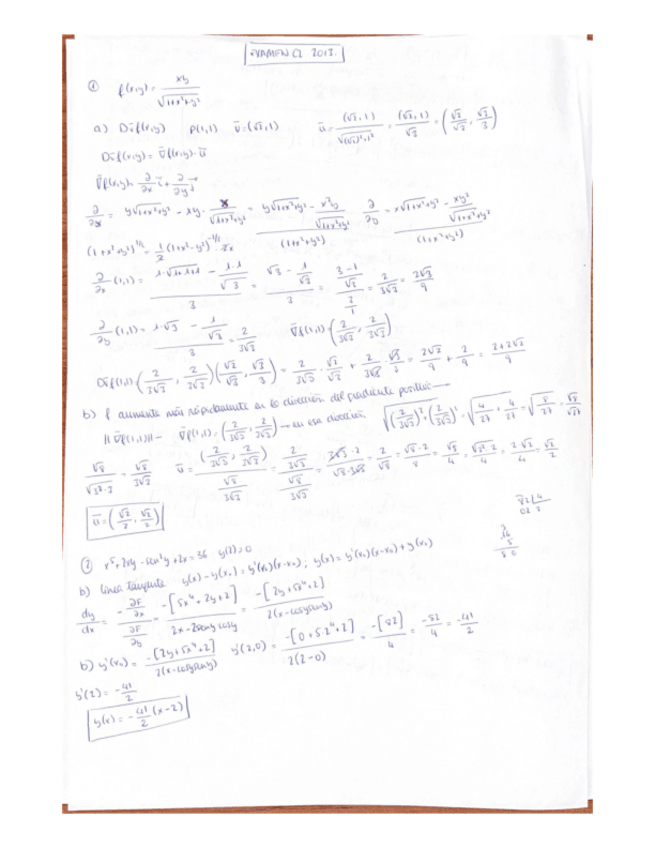 EXAMEN C2 2013.
① f(x,y) = xy / √(1+x²+y²)
a) Dūf(x,y) P(1,1) ū=(√2,1) ū = (√2,1) / √((√2)²+1²) = (√2,1) / √3 = (√2/√3, √3/3)
Dūf(x,y) = ∇f(x,y)·ū
∇f(x,y) = ∂/∂x i + ∂/∂y j
∂/∂x = (y√(1+x²+y²) - xy · x/√(1+x²+y²)) = (y√(1+x²+y²) - x²y/√(1+x²+y²)) / (1+x²+y²) ∂/∂y = (x√(1+x²+y²) - xy²/√(1+x²+y²)) / (1+x²+y²)
(1+x²+y²)^1/2 = 1/2 (1+x²-y²)^-1/2 · 2x
∂/∂x (1,1) = (1·√(1+1+1) - 1·1/√3) / 3 = (√3 - 1/√3) / 3 = ((3-1)/√3) / (3/1) = 2/3√3 = 2√3/9
∂/∂y (1,1) = (1·√3 - 1/√3) / 3 = 2/3√3 ∇f(1,1) (2/3√3, 2/3√3)
Dūf(1,1) · (2/3√3, 2/3√3)(√2/√3, √3/3) = 2/3√3 · √2/√3 + 2/3√3 · √3/3 = 2√2/9 + 2/9 = (2+2√2)/9
b) f aumenta más rápidamente en la dirección del gradiente positivo
||∇f(1,1)|| - ∇f(1,1) = (2/3√3, 2/3√3) → en esa dirección √((2/3√3)² + (2/3√3)²) = √(4/27 + 4/27) = √(8/27) = √8/√27
√8/√(3²·3) = √8/3√3 ū = (2/3√3, 2/3√3) / (√8/3√3) = (2/3√3) / (√8/3√3) = 3√3·2 / √8·3√3 = 2/√8 = √8·2/8 = √8/4 = √(2²·2)/4 = 2√2/4 = √2/2
ū = (√2/2, √2/2)
② x⁵+2xy-sen²y+2x=36 y(2)=0
b) línea tangente y(x)-y(x₀)=y'(x₀)(x-x₀); y(x)=y'(x₀)(x-x₀)+y(x₀)
dy/dx = - (∂F/∂x) / (∂F/∂y) = -[5x⁴+2y+2] / (2x-2seny cosy) = -[2y+5x⁴+2] / 2(x-cosyseny)
b) y'(x₀) = -[2y+5x⁴+2] / 2(x-cosyseny) y'(2,0) = -[0+5·2⁴+2] / 2(2-0) = -[82]/4 = -82/4 = -41/2
y'(2) = -41/2
y(x) = -41/2 (x-2)